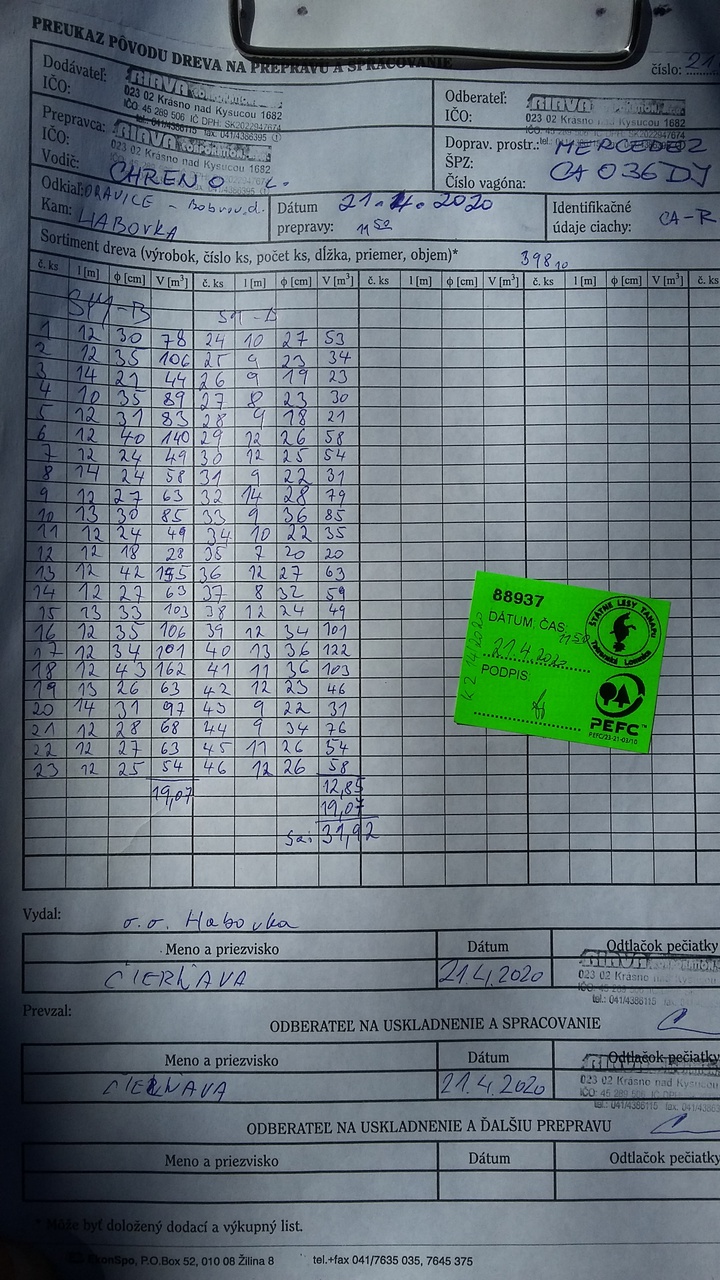 PREUKAZ PÔVODU DREVA NA PREPRAVU A SPRACOVANIE
číslo: 21
Dodávateľ: RIAVA
IČO: 023 02 Krásno nad Kysucou 1682
IČO 45 289 506 IČ DPH: SK2022947674
tel.: 041/4386115 fax. 041/4386395
Odberateľ: RIAVA
IČO: 023 02 Krásno nad Kysucou 1682
Prepravca: RIAVA
IČO: 023 02 Krásno nad Kysucou 1682
Vodič: CHRENO
Doprav. prostr.: MERCEDEZ
ŠPZ: CA 036DJ
Číslo vagóna:
Odkiaľ: ORAVICE - Bobrov.d.
Kam: HABOVKA
Dátum prepravy: 21.4.2020 11 50
Identifikačné údaje ciachy: CA-R
Sortiment dreva (výrobok, číslo ks, počet ks, dĺžka, priemer, objem)* 398 10
č. ks l [m] ϕ [cm] V [m³] č. ks l [m] ϕ [cm] V [m³] č. ks l [m] ϕ [cm] V [m³] č. ks l [m] ϕ [cm] V [m³] č. ks
1 12 30 78 24 10 27 53
2 12 35 106 25 9 23 34
3 14 21 44 26 9 19 23
4 10 35 89 27 8 23 30
5 12 31 83 28 9 18 21
6 12 40 140 29 12 26 58
7 12 24 49 30 12 25 54
8 14 24 58 31 9 22 31
9 12 27 63 32 14 28 79
10 13 30 85 33 9 36 85
11 12 24 49 34 10 22 35
12 12 18 28 35 7 20 20
13 12 42 155 36 12 27 63
14 12 27 63 37 8 32 59
15 13 33 103 38 12 24 49
16 12 35 106 39 12 34 101
17 12 34 101 40 13 36 122
18 12 43 162 41 11 36 103
19 13 26 63 42 12 23 46
20 14 31 97 43 9 22 31
21 12 28 68 44 9 34 76
22 12 27 63 45 11 26 54
23 12 25 54 46 12 26 58
19,07 12,85
19,07
31,92
88937
DÁTUM, ČAS
21.4.2020 11 50
PODPIS:
ŠTÁTNE LESY TANAPU
Tatranská Lomnica
PEFC™
PEFC/23-21-02/10
Vydal: o.o. Habovka
Meno a priezvisko Dátum Odtlačok pečiatky
ČIERŇAVA 21.4.2020
RIAVA
023 02 Krásno nad Kysucou
IČO: 45 289 506 IČ DPH
tel.: 041/4386115
Prevzal:
ODBERATEĽ NA USKLADNENIE A SPRACOVANIE
Meno a priezvisko Dátum Odtlačok pečiatky
ČIERŇAVA 21.4.2020
023 02 Krásno nad Kysucou
IČO: 45 289 506 IČ DPH
tel.: 041/4386115
ODBERATEĽ NA USKLADNENIE A ĎALŠIU PREPRAVU
Meno a priezvisko Dátum Odtlačok pečiatky
* Môže byť doložený dodací a výkupný list.
EkonSpo, P.O.Box 52, 010 08 Žilina 8 tel.+fax 041/7635 035, 7645 375